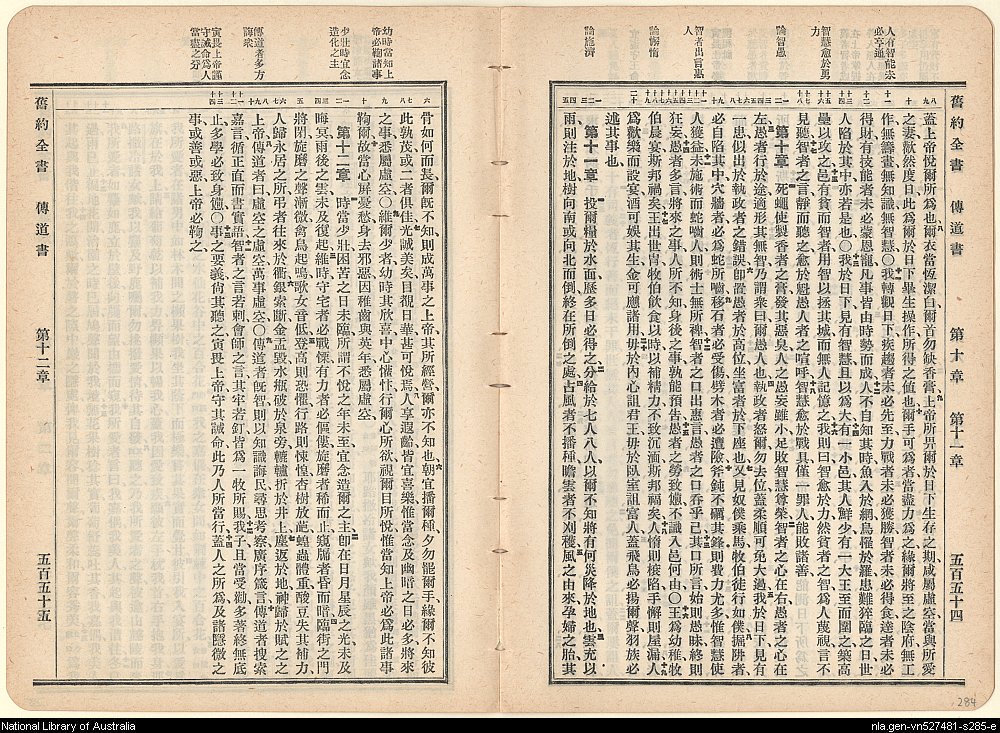 舊約全書 傳道書 第十章 第十一章 五百五十四
人有智能未
必亨通
智慧愈於勇
力
論智愚
智者出言惠
人
論施濟
蓋上帝悅爾所爲也爾衣當恆潔白爾首勿缺香膏上帝所畀爾於日下生存之期咸屬虛空當與所愛
之妻歡然度日此爲爾於日下畢生操作所得之値也爾手可爲者當盡力爲之緣爾將至之陰府無工
作無籌畫無知識無智慧〇我轉觀日下疾趨者未必先至力戰者未必獲勝智者未必得食達者未必
得財有技能者未必蒙恩寵凡事皆由時勢而成人不自知其時魚入於網鳥罹於羅患難猝臨之日世
人陷於其中亦若是也〇我於日下見有智慧且以爲大有一小邑其人鮮少有一大王至而圍之築高
壘以攻之邑有貧而智者用智以拯其城而無人記憶之我則曰智愈於力然貧者之智爲人蔑視言不
見聽智者之言靜而聽之愈於魁愚人者之喧呼智慧愈於戰具僅一罪人能敗諸善
第十章 死蠅使製香者之膏發其惡臭人之愚妄雖小足敗智慧尊榮智者之心在右愚者之心在
左愚者行於途適形其無智乃謂衆曰爾愚人也執政者怒爾勿去位蓋柔順可免大過我於日下見有
一患似出於執政者之錯誤卽置愚者於高位坐富者於下座也又見奴僕乘馬牧伯徒行如僕掘阱者
必自陷其中穴牆者必爲蛇所嚙移石者必受傷劈木者必遭險斧鈍不礪其鋒則費力尤多惟智慧使
人獲益未施術而蛇嚙人則術士無所裨智者之口出惠言愚者之口吞乎己其口所言始則愚昧終則
狂妄愚者多言將來之事人所不知身後之事孰能預告愚者之勞致憊不識入邑何由〇王爲幼稚牧
伯晨宴斯邦禍矣王出世胄牧伯飲食以時以補精力不致沉湎斯邦福矣人惰則榱陷手懈則屋漏人
爲歡樂而設宴酒可娛其生金可應諸用毋於內心詛君王毋於臥室詛富人蓋飛鳥必揚爾聲羽族必
述其事也
第十一章 投爾糧於水面歷多日必得之分給於七人八人以爾不知將有何災降於地也雲充以
雨則注於地樹向南或向北而倒終在所倒之處占風者不播種瞻雲者不刈穫風之由來孕婦之胎其
幼時當知上
帝必鞫諸事
少壯時宜念
造化之主
傳道者多方
誨衆
寅畏上帝謹
守誡命爲人
當盡之分
骨如何而長爾旣不知則成萬事之上帝其所經營爾亦不知也朝宜播爾種夕勿罷爾手緣爾不知彼
此孰茂或二者俱佳光誠美矣目覩日華甚可悅焉人享遐齡皆宜喜樂惟當念及幽暗之日必多將來
之事悉屬虛空〇維爾少者幼時其欣喜中心懽忭行爾心所欲視爾目所悅惟當知上帝必爲此諸事
鞫爾故當心屏憂愁身去邪惡因稚齒與英年悉屬虛空
第十二章 時當少壯困苦之日未臨所謂不悅之年未至宜念造爾之主卽在日月星辰之光未及
晦冥雨後之雲未及復起維時守宅者必戰慄有力者必傴僂旋磨者稀而止窺牖者昏而暗臨街之門
將閉旋磨之聲漸微禽鳥起鳴歌女音低登高則恐懼行路則悚惶杏樹放葩蝗蟲體重酸豆失其補力
人歸永居之所弔者往來於衢銀索斷金盂毀水瓶破於泉旁轆轤折於井上塵返於地神歸於賦之之
上帝傳道者曰虛空之虛空萬事虛空〇傳道者旣智則以知識誨民尋思考察廣序箴言傳道者搜索
嘉言循正直而書實語智者之言若刺會師之言其牢若釘皆爲一牧所賜我子且當受勸多著終無底
止多學必致身憊〇事之要義尙其聽之寅畏上帝守其誡命此乃人所當行蓋人之所爲及諸隱微之
事或善或惡上帝必鞫之
舊約全書 傳道書 第十二章 五百五十五
284
National Library of Australia
nla.gen-vn527481-s285-e